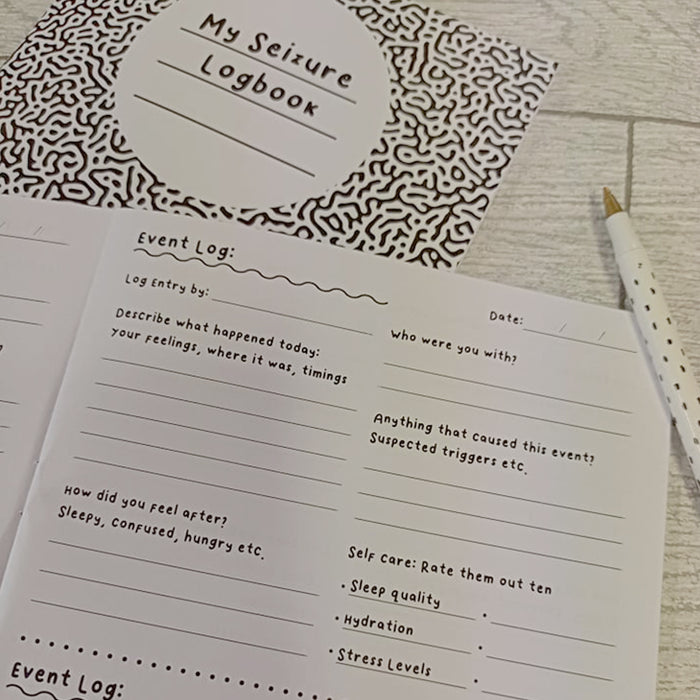 My Seizure
Logbook
Event Log:
Log Entry by:
Date: / /
Describe what happened today:
your feelings, where it was, timings
Who were you with?
Anything that caused this event?
Suspected triggers etc.
How did you feel after?
Sleepy, confused, hungry etc.
Self care: Rate them out ten
• Sleep quality
• Hydration
• Stress Levels
Event Log: